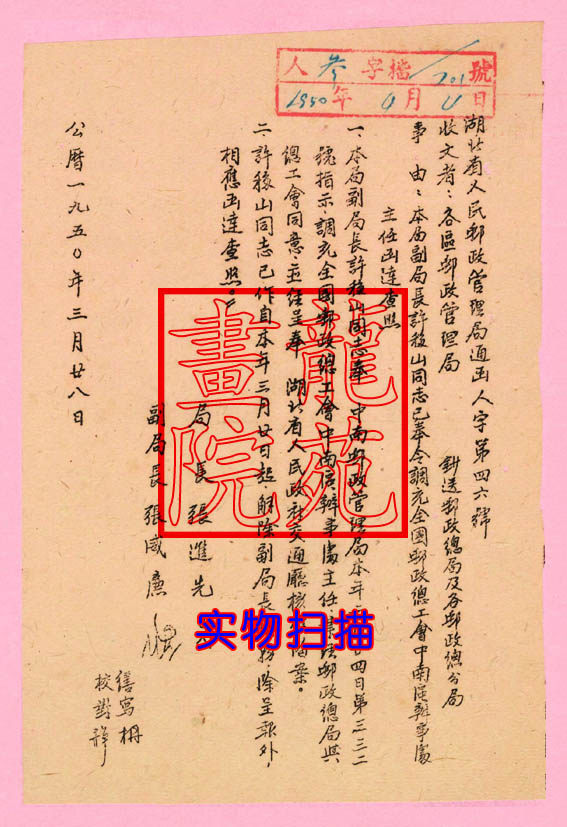 人 參 字 第 701 號
1950 年 4 月 4 日
湖北省人民郵政管理局通函人字第四六號
收文者：各區郵政管理局 鈔送郵政總局及各郵政總分局
事由：本局副局長許稜山同志已奉令調充全國郵政總工會中南區辦事處
主任函達查照
一、本局副局長許稜山同志奉 中南郵政管理局本年 四日第三三二
號指示，調充全國郵政總工會中南區辦事處主任， 郵政總局與
總工會同意，並經呈奉 湖北省人民政府交通廳核 備案。
二、許稜山同志已作自本年三月廿日起，解除副局長 務，除呈報外，
相應函達查照。
局長 張進先
副局長 張咸廉
公曆一九五〇年三月廿八日
繕寫 栩
校對 靜
龍苑
畫院
实物扫描